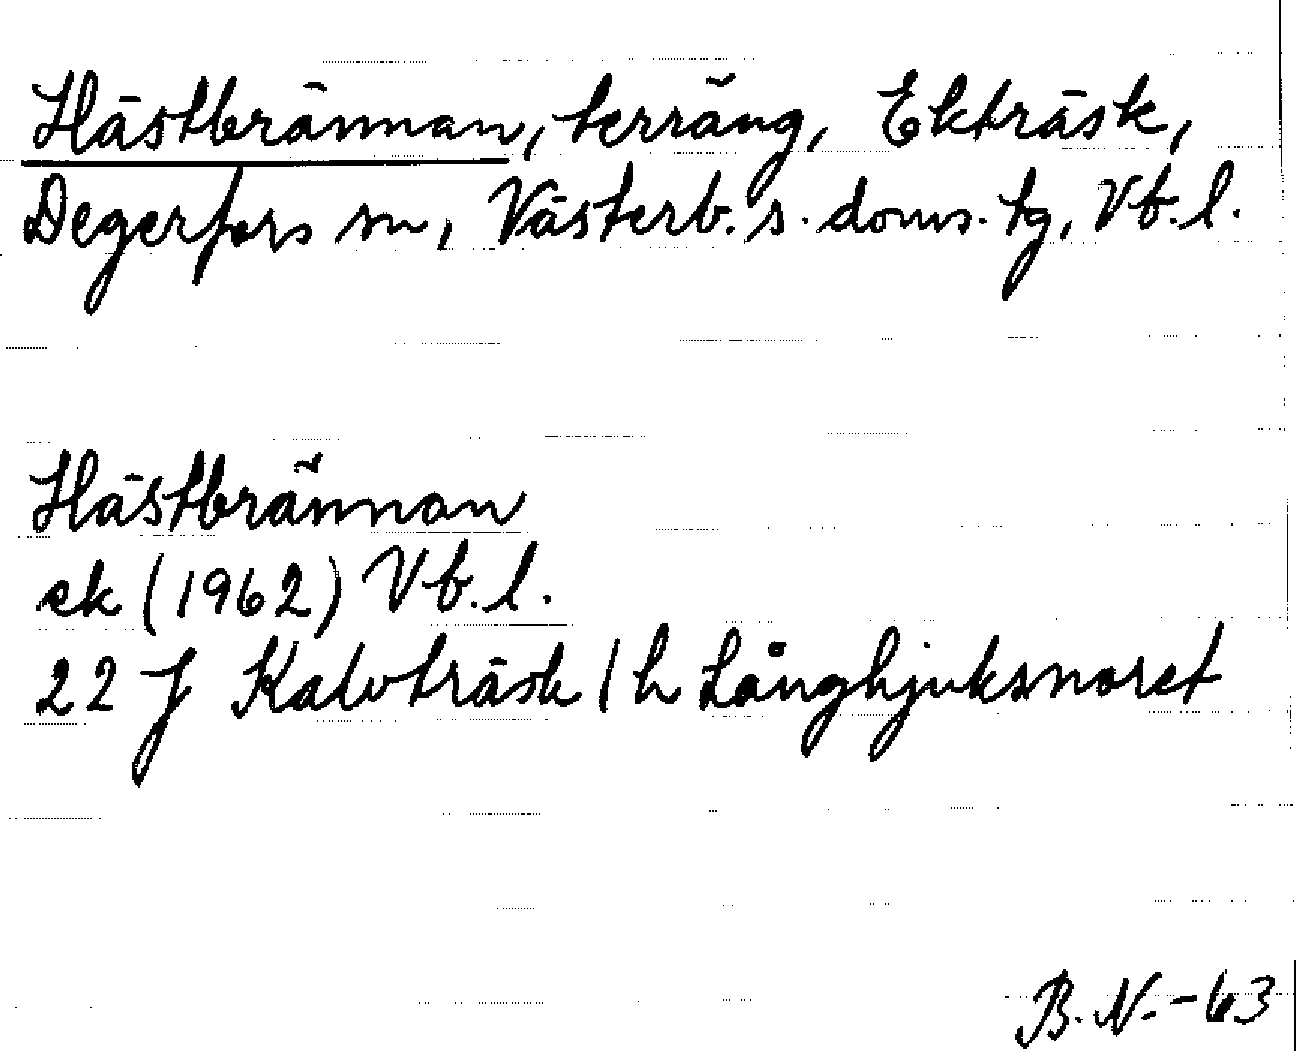 Hästbrännan, terräng, Ekträsk,
Degerfors sn, Västerb. s. doms. tg, Vb. l.
Hästbrännan
ek (1962) Vb. l.
22 J Kalvträsk / h Långhjuksnoret
B. N. - 63